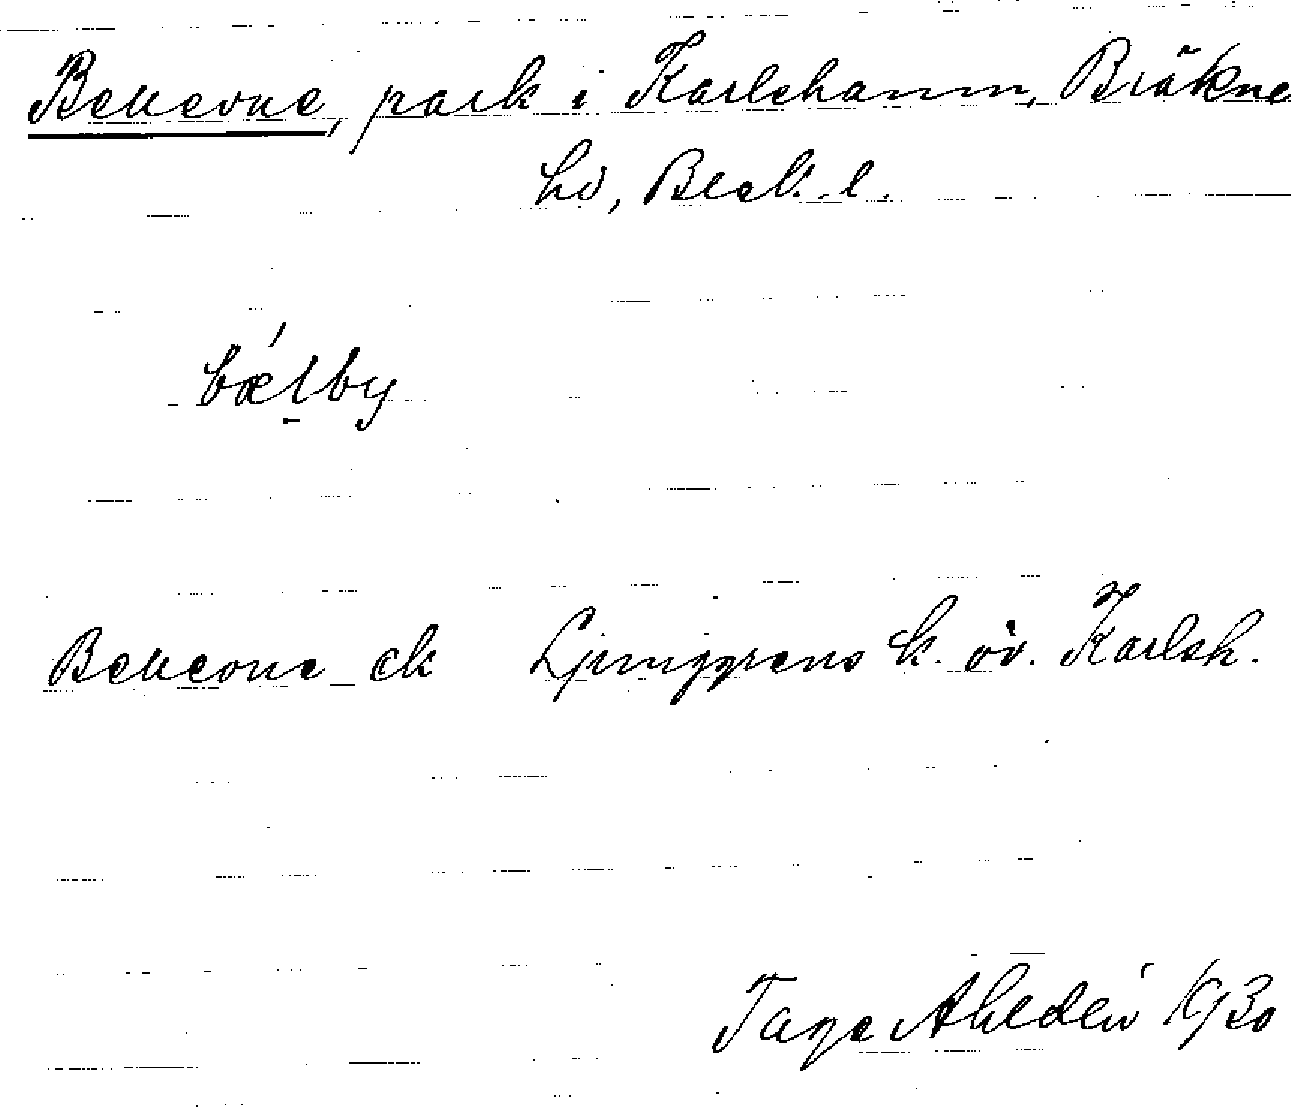 Bellevue, park i Karlshamn, Bräkne
hd, Blek. l.
bælby
Bellevue ek Ljunggrens k. öv. Karlsh.
Tage Ahldén 1930